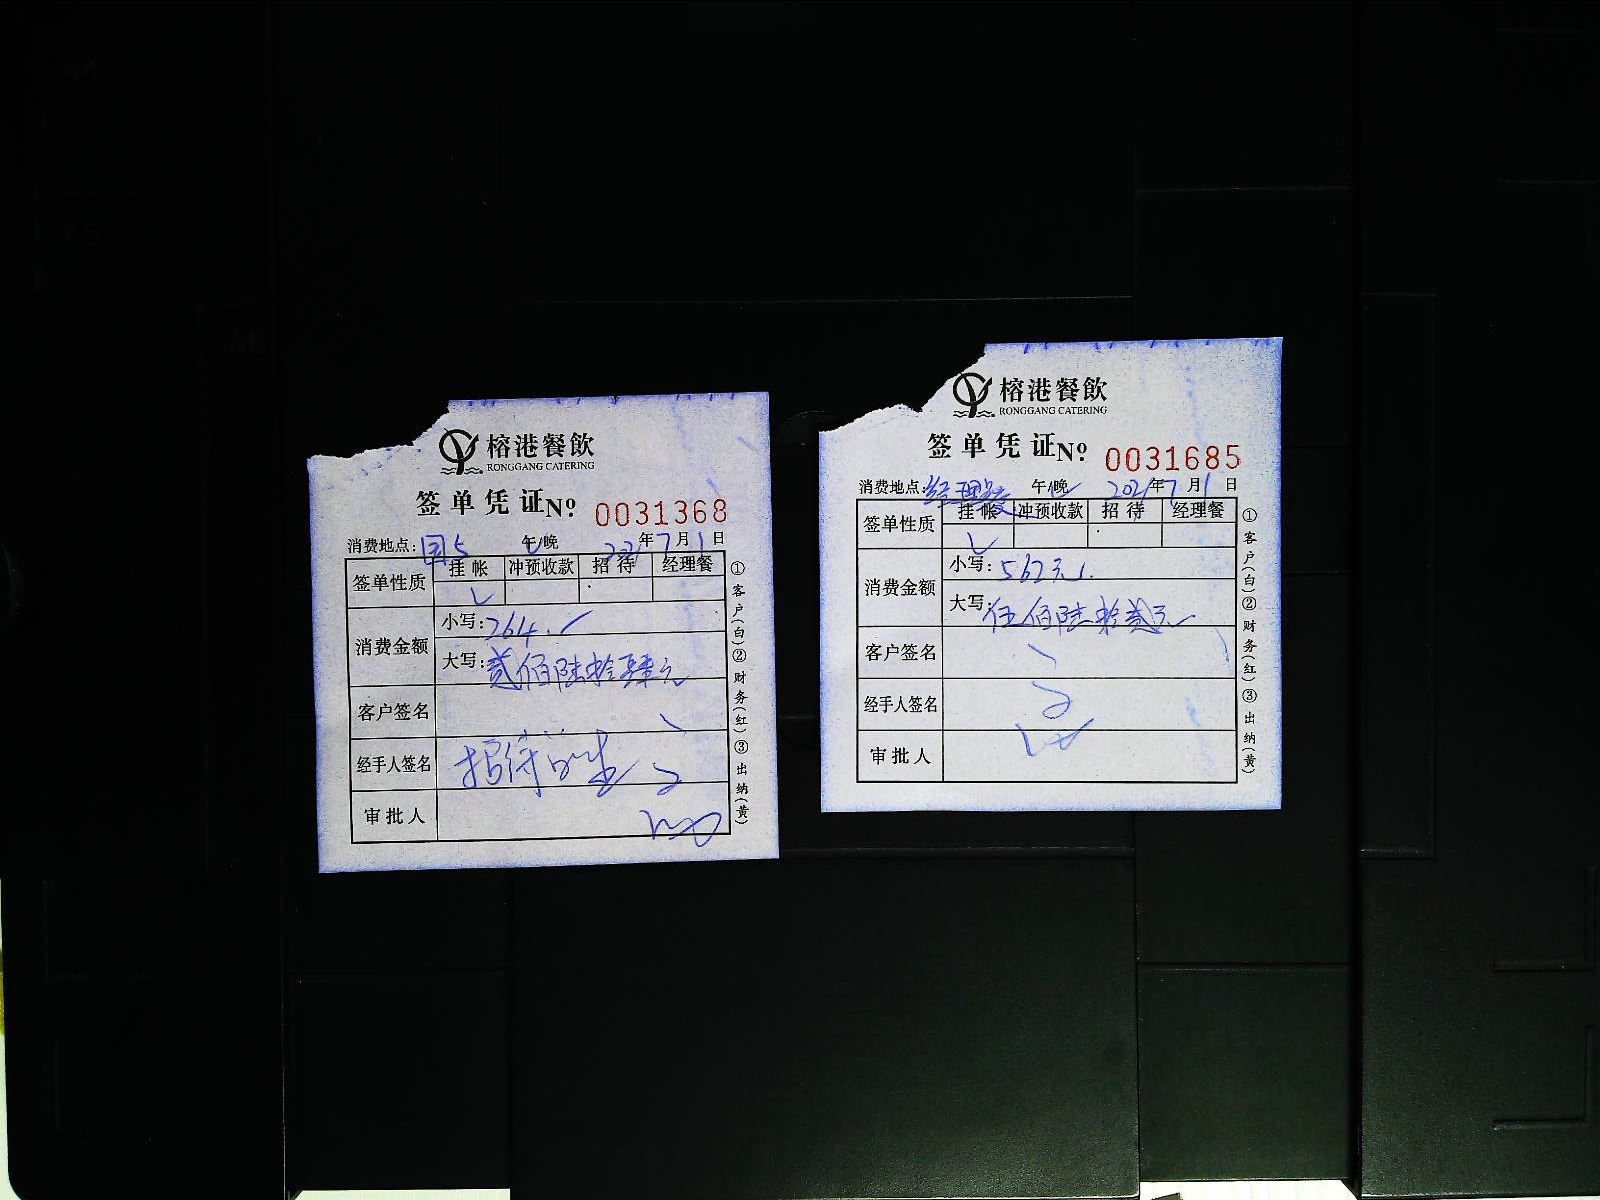 榕港餐飲
RONGGANG CATERING
签单凭证 Nº 0031368
消费地点: 国5 午/晚 年7月1日
签单性质 挂帐 冲预收款 招待 经理餐
消费金额 小写: 264.
大写: 贰佰陆拾肆元
客户签名
经手人签名 招待
审批人
①客户(白)②财务(红)③出纳(黄)
榕港餐飲
RONGGANG CATERING
签单凭证 Nº 0031685
消费地点: 经理 午/晚 2021年7月1日
签单性质 挂帐 冲预收款 招待 经理餐
消费金额 小写: 562元
大写: 伍佰陆拾贰元
客户签名
经手人签名
审批人
①客户(白)②财务(红)③出纳(黄)